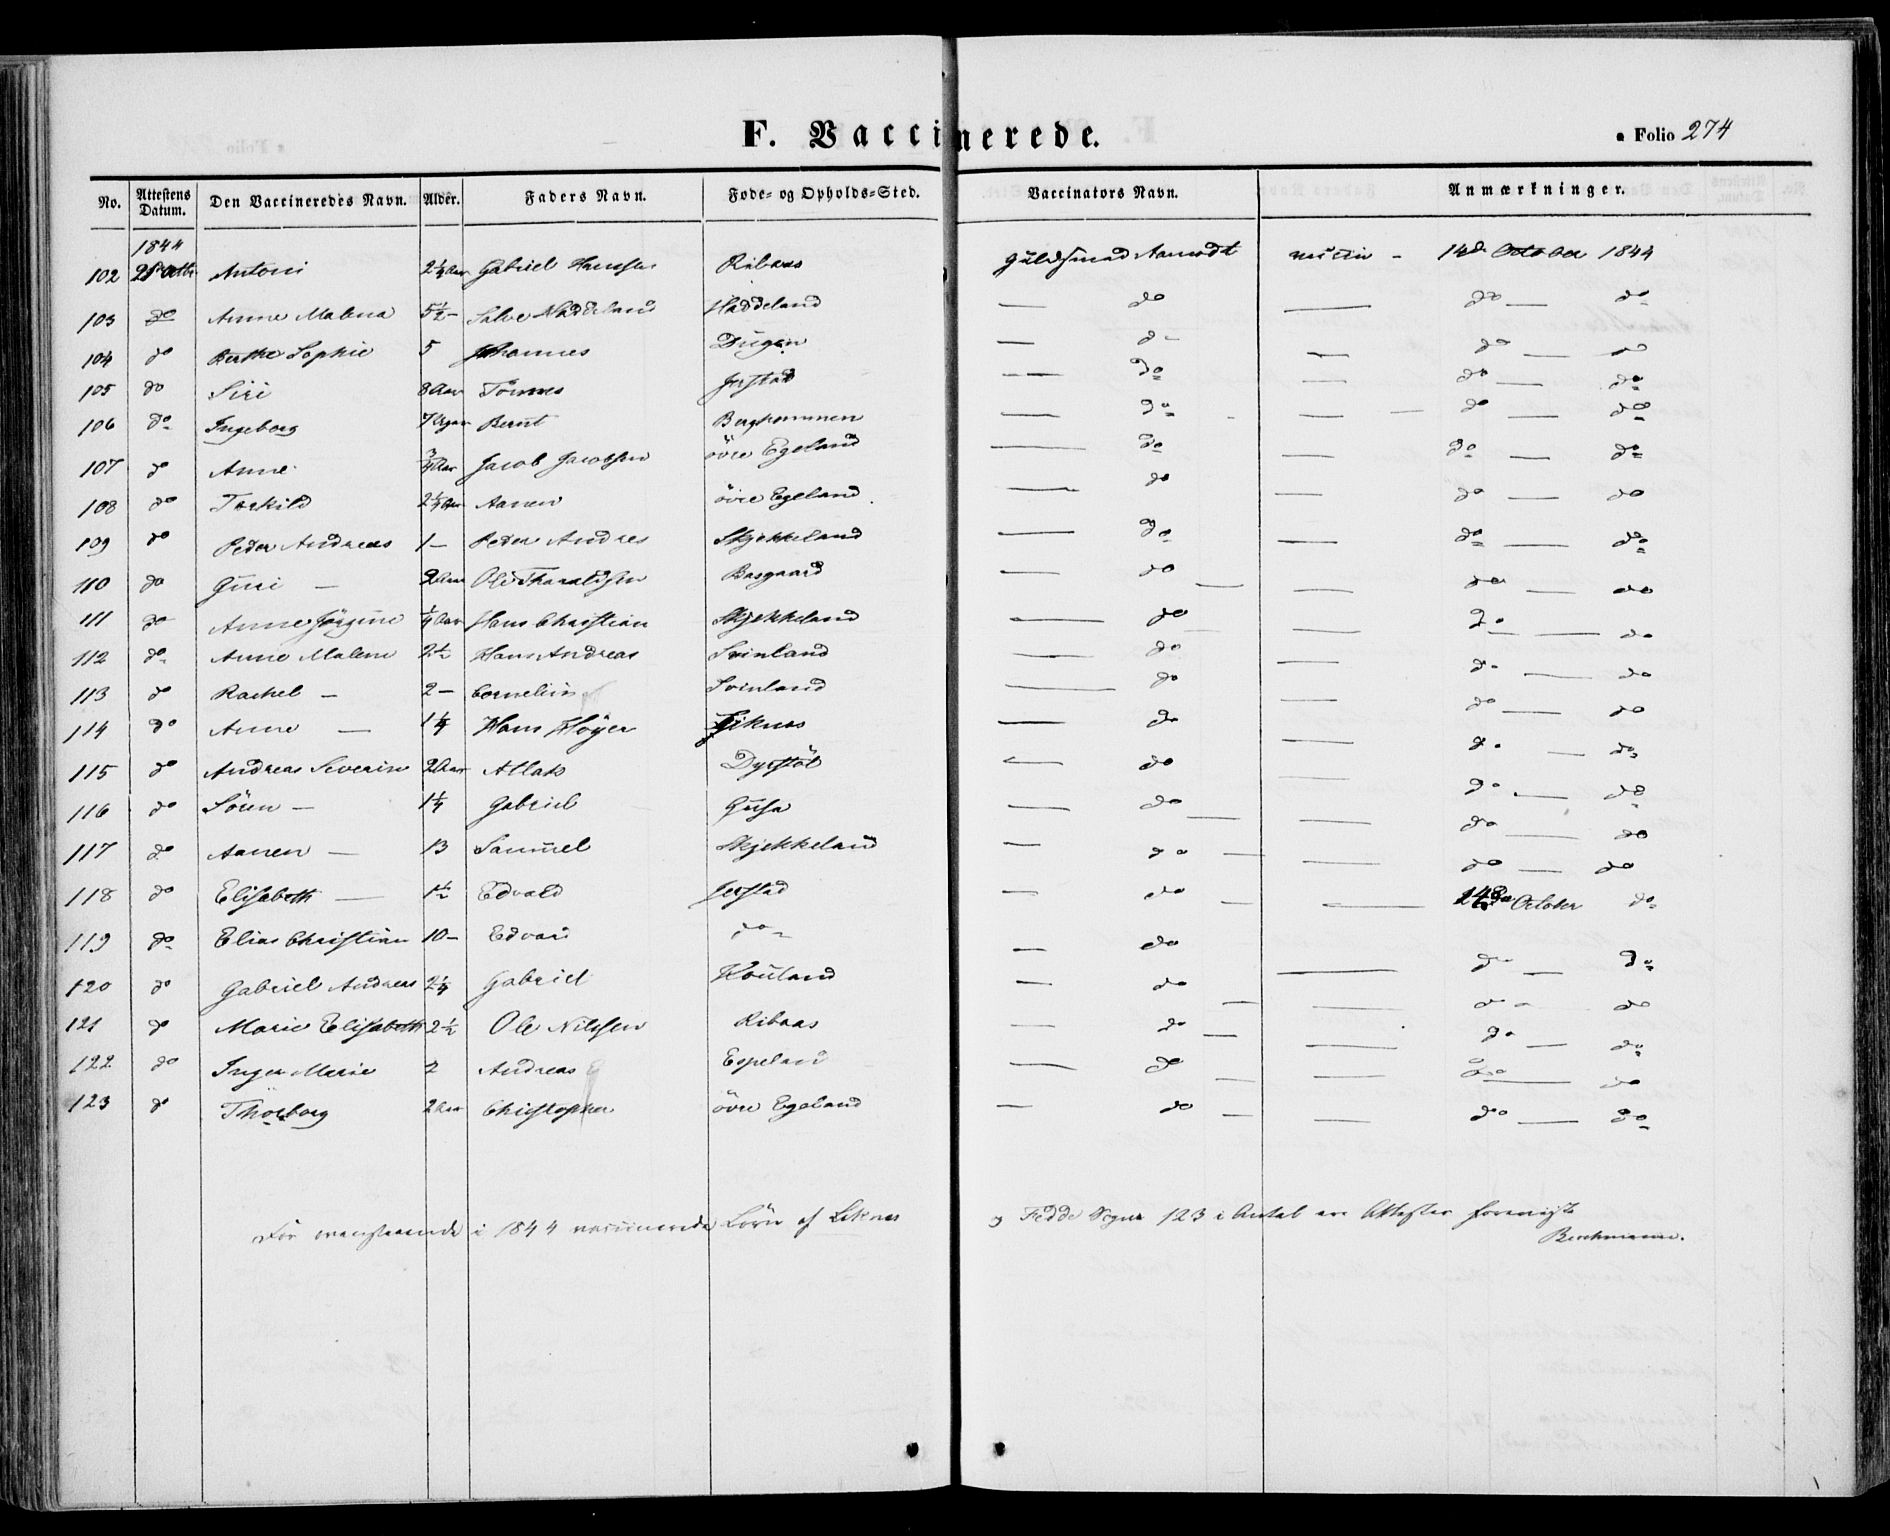 F. Vaccinerede.
Folio 274
No. Attestens Datum. Den Vaccineredes Navn. Alder. Faders Navn. Føde- og Opholds-Sted. Vaccinators Navn. Anmærkninger.
1844
102 Antoni 2¼ Aar Gabriel Hanssen Ribaas Guldsmed Aamodt 14de October 1844
103 do Anne Malena 5½ - Salve Haddeland Haddeland — do — do — do
104 do Berthe Sophie 5 Johannes — do — do — do
105 do Siri 8 Aar Tönnes Jerstad — do — do — do
106 do Ingeborg 7 Bernt — do — do — do
107 do Anne ¾ Aar Jacob Jacobsen övre Egeland — do — do — do
108 do Torkild 2¼ Aar Aanen övre Egeland — do — do — do
109 do Peder Andreas 1 - Peder Andres Skjekkeland — do — do — do
110 do Guri — 2 Aar Ole Tharaldsen Bosgaard — do — do — do
111 do Anne Jörgine ¼ Aar Hans Christian Skjekkeland — do — do — do
112 do Anne Malene 2½ Hans Andreas Svinland — do — do — do
113 do Rachel — 2 - Cornelius Svinland — do — do — do
114 do Anne — 1¼ Hans Höyer — do — do — do
115 do Andreas Severin 2 Aar Atlak Dyrstöl — do — do — do
116 do Sören — 1¼ Gabriel Gusa — do — do — do
117 do Aanen — 13 Samuel Skjekkeland — do — do — do
118 do Elisabeth — 1½ Edvald Jerstad — do — 14de October do
119 do Elias Christian 10 - Edvard do — do — do — do
120 do Gabriel Andreas 2¼ Gabriel Houland — do — do — do
121 do Marie Elisabeth 2½ Ole Nilssen Ribaas — do — do — do
122 do Inger Marie 2 Andreas Espeland — do — do — do
123 do Thorborg 2 Aar Christopher övre Egeland — do — do — do
For ovenstaaende i 1844 vaccinerede Börn af Liknes og Fedde Sogne 123 i Antal ere Attester